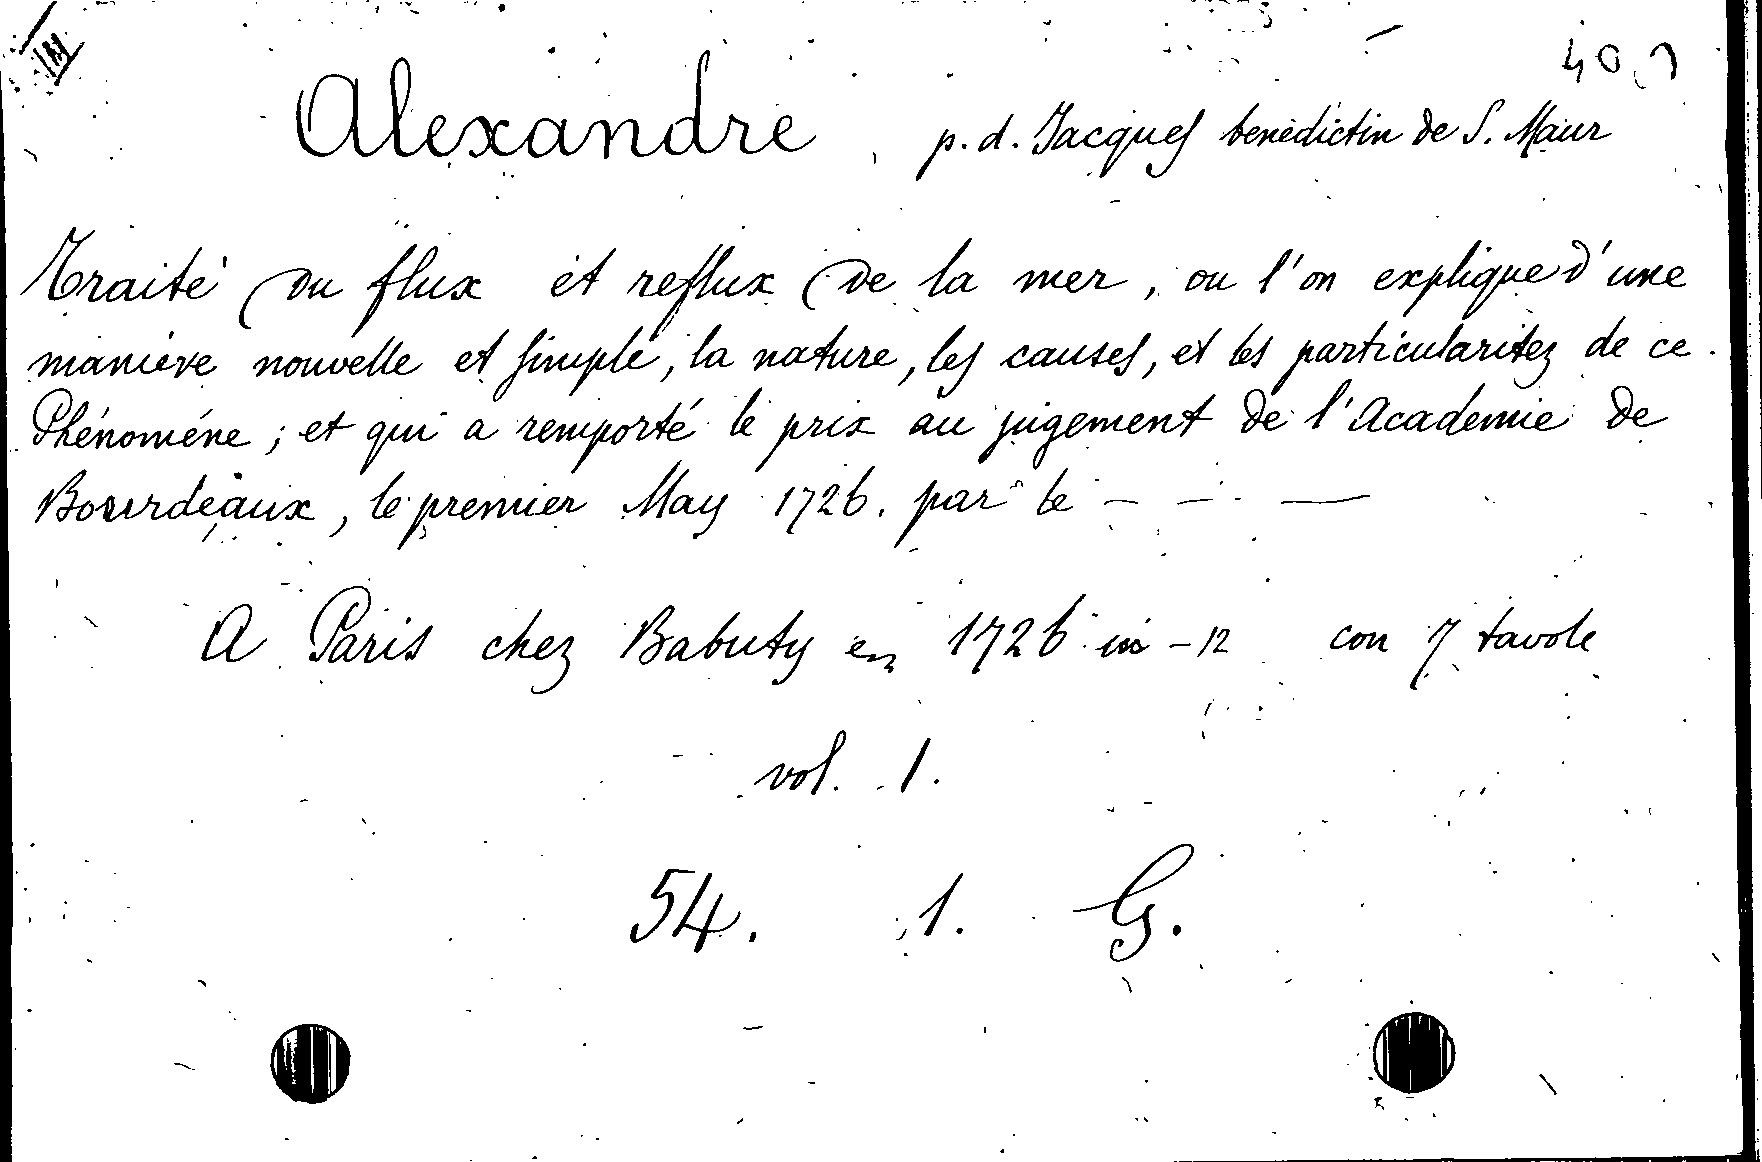 Alexandre, p. d. Jacques benédictin de S. Maur
Traité du flux et reflux de la mer, ou l'on explique d'une
maniére nouvelle et simple, la nature, les causes, et les particularitez de ce
Phénoméne; et qui a remporté le prix au jugement de l'Academie de
Bourrdeaux, le premier May 1726. par le - - -
A Paris chez Babuty en 1726 in-12 con 7 tavole
vol. 1.
54. 1. G.